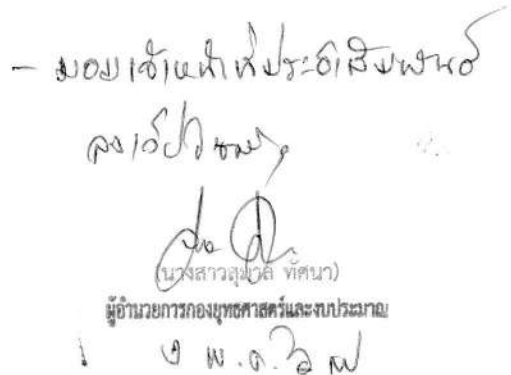 - มอบเจ้าหน้าที่ประชาสัมพันธ์
ลงเว็ป
(นางสาวสุมาลี ทัศนา)
ผู้อำนวยการกองยุทธศาสตร์และงบประมาณ
พ.ค.